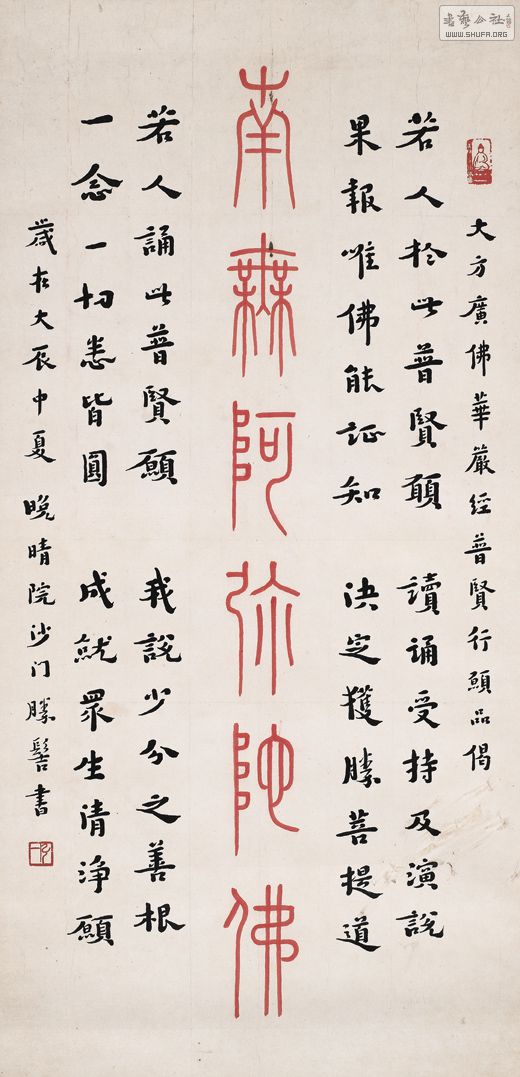 書藝公社
WWW.SHUFA.ORG
大方廣佛華嚴經普賢行願品偈
若人於此普賢願 讀誦受持及演說
果報唯佛能証知 决定獲勝菩提道
南無阿弥陀佛
若人誦此普賢願 我說少分之善根
一念一切悉皆圓 成就眾生清淨願
歲在大辰中夏 晚晴院沙门勝髻書